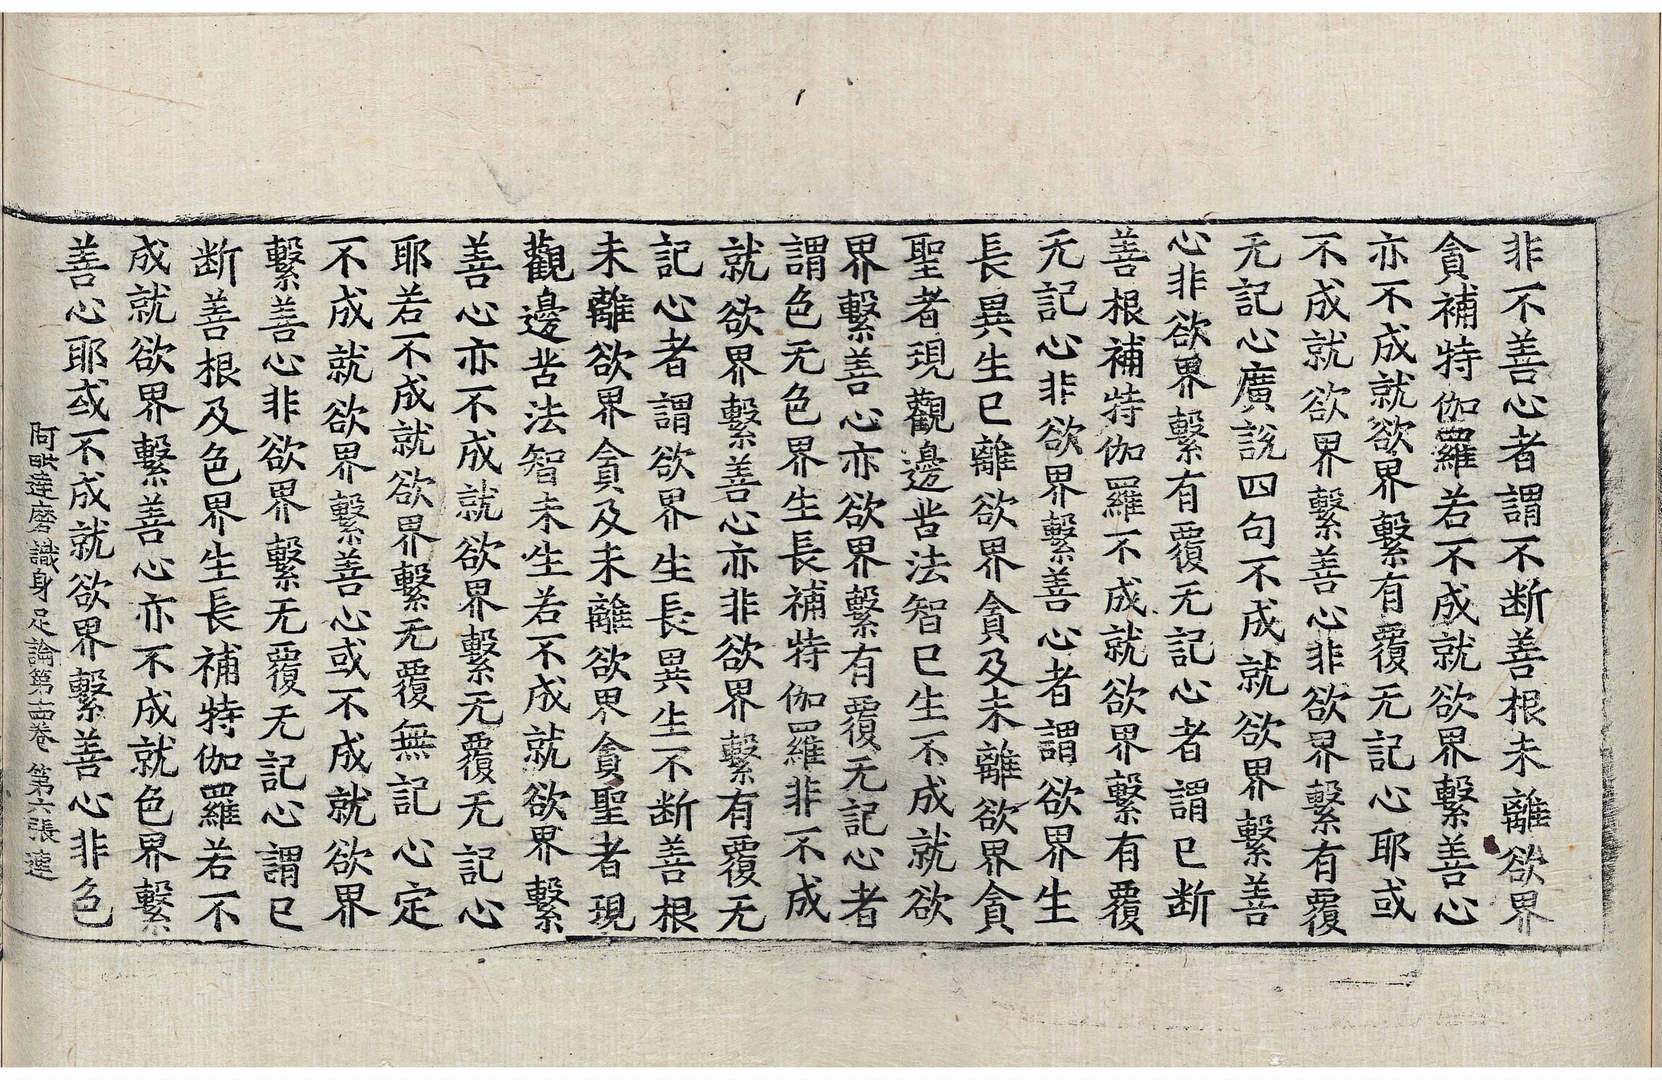 非不善心者謂不断善根未離欲界
貪補特伽羅若不成就欲界繫善心
亦不成就欲界繫有覆无記心耶或
不成就欲界繫善心非欲界繫有覆
无記心廣說四句不成就欲界繫善
心非欲界繫有覆无記心者謂已断
善根補特伽羅不成就欲界繫有覆
无記心非欲界繫善心者謂欲界生
長異生已離欲界貪及未離欲界貪
聖者現觀邊苦法智已生不成就欲
界繫善心亦欲界繫有覆无記心者
謂色无色界生長補特伽羅非不成
就欲界繫善心亦非欲界繫有覆无
記心者謂欲界生長異生不断善根
未離欲界貪及未離欲界貪聖者現
觀邊苦法智未生若不成就欲界繫
善心亦不成就欲界繫无覆无記心
耶若不成就欲界繫无覆無記心定
不成就欲界繫善心或不成就欲界
繫善心非欲界繫无覆无記心謂已
断善根及色界生長補特伽羅若不
成就欲界繫善心亦不成就色界繫
善心耶或不成就欲界繫善心非色
阿毗達磨識身足論第十四卷 第六張 連